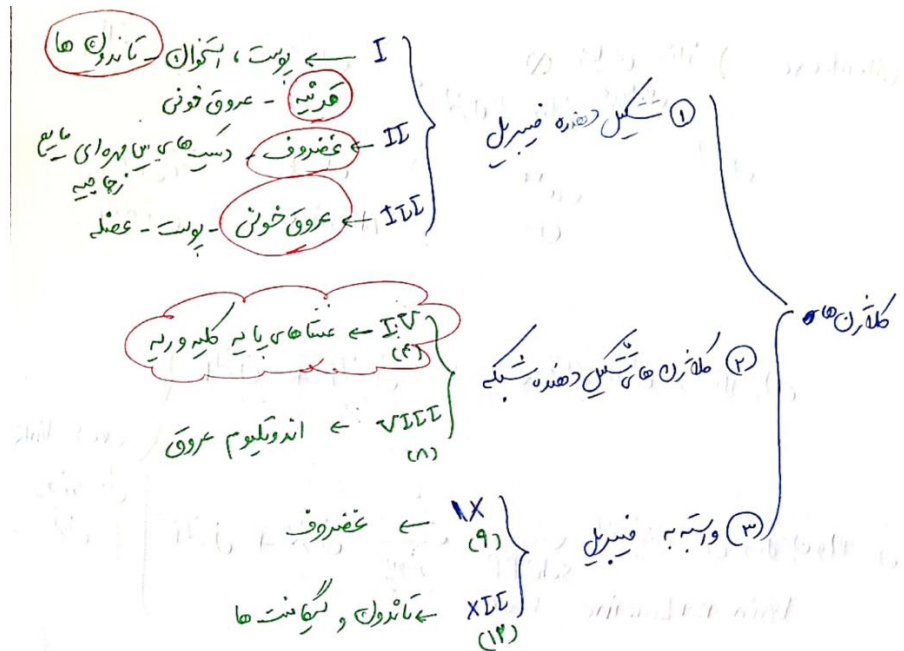 کلاژن ها
① تشکیل دهنده فیبریل
I ← پوست، استخوان - تاندون ها
قرنیه - عروق خونی
II ← غضروف - دیسک های بین مهره ای مایع
زجاجیه
III ← عروق خونی - پوست - عضله
② کلاژن های تشکیل دهنده شبکه
IV ← غشاهای پایه کلیه و ریه
(۴)
VIII ← اندوتلیوم عروق
(۸)
③ وابسته به فیبریل
IX ← غضروف
(۹)
XII ← تاندون و لیگامنت ها
(۱۲)